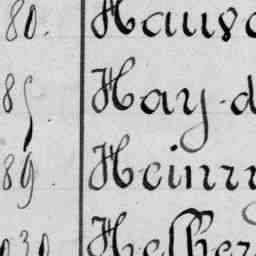 80. Hausd
85 Hay. d
89. Heinr
030 Helber